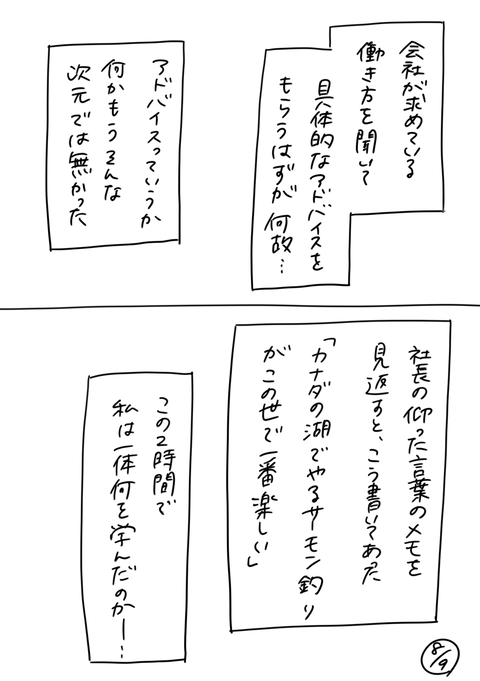 会社が求めている
働き方を聞いて
具体的なアドバイスを
もらうはずが 何故…
アドバイスっていうか
何かもうそんな
次元では無かった
社長の仰った言葉のメモを
見返すと、こう書いてあった
「カナダの湖でやるサーモン釣り
がこの世で一番楽しい」
この2時間で
私は一体何を学んだのかー…
8/9